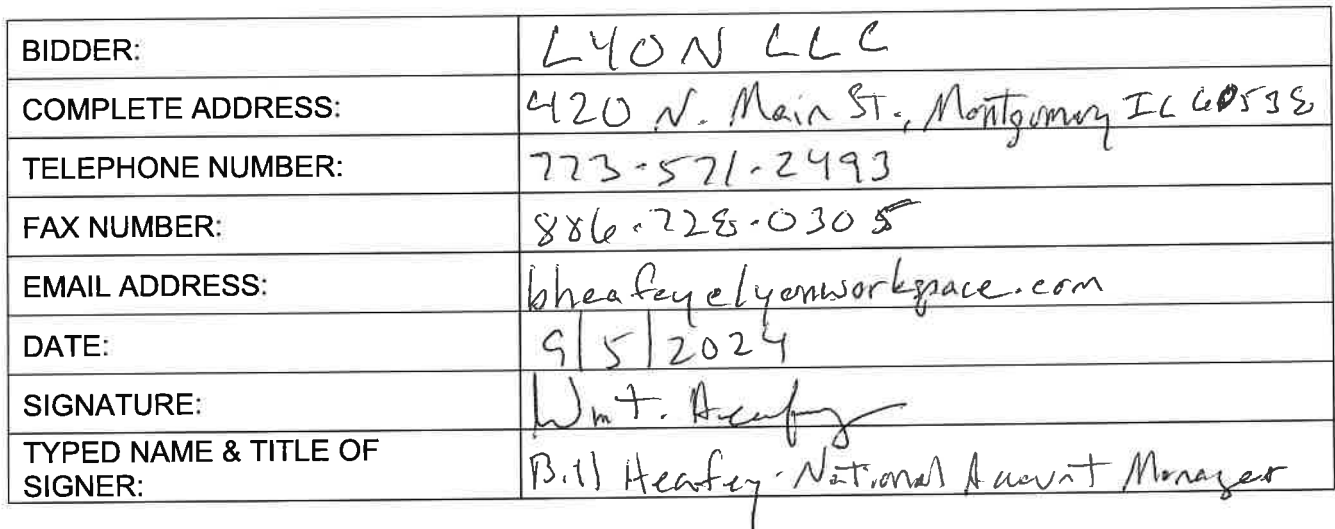 BIDDER: LYON LLC
COMPLETE ADDRESS: 420 N. Main St., Montgomery IL 60538
TELEPHONE NUMBER: 773-571-2493
FAX NUMBER: 886-728-0305
EMAIL ADDRESS: bheafey@lyonworkspace.com
DATE: 9/5/2024
SIGNATURE: Wm T. Heafey
TYPED NAME & TITLE OF
SIGNER: Bill Heafey - National Account Manager